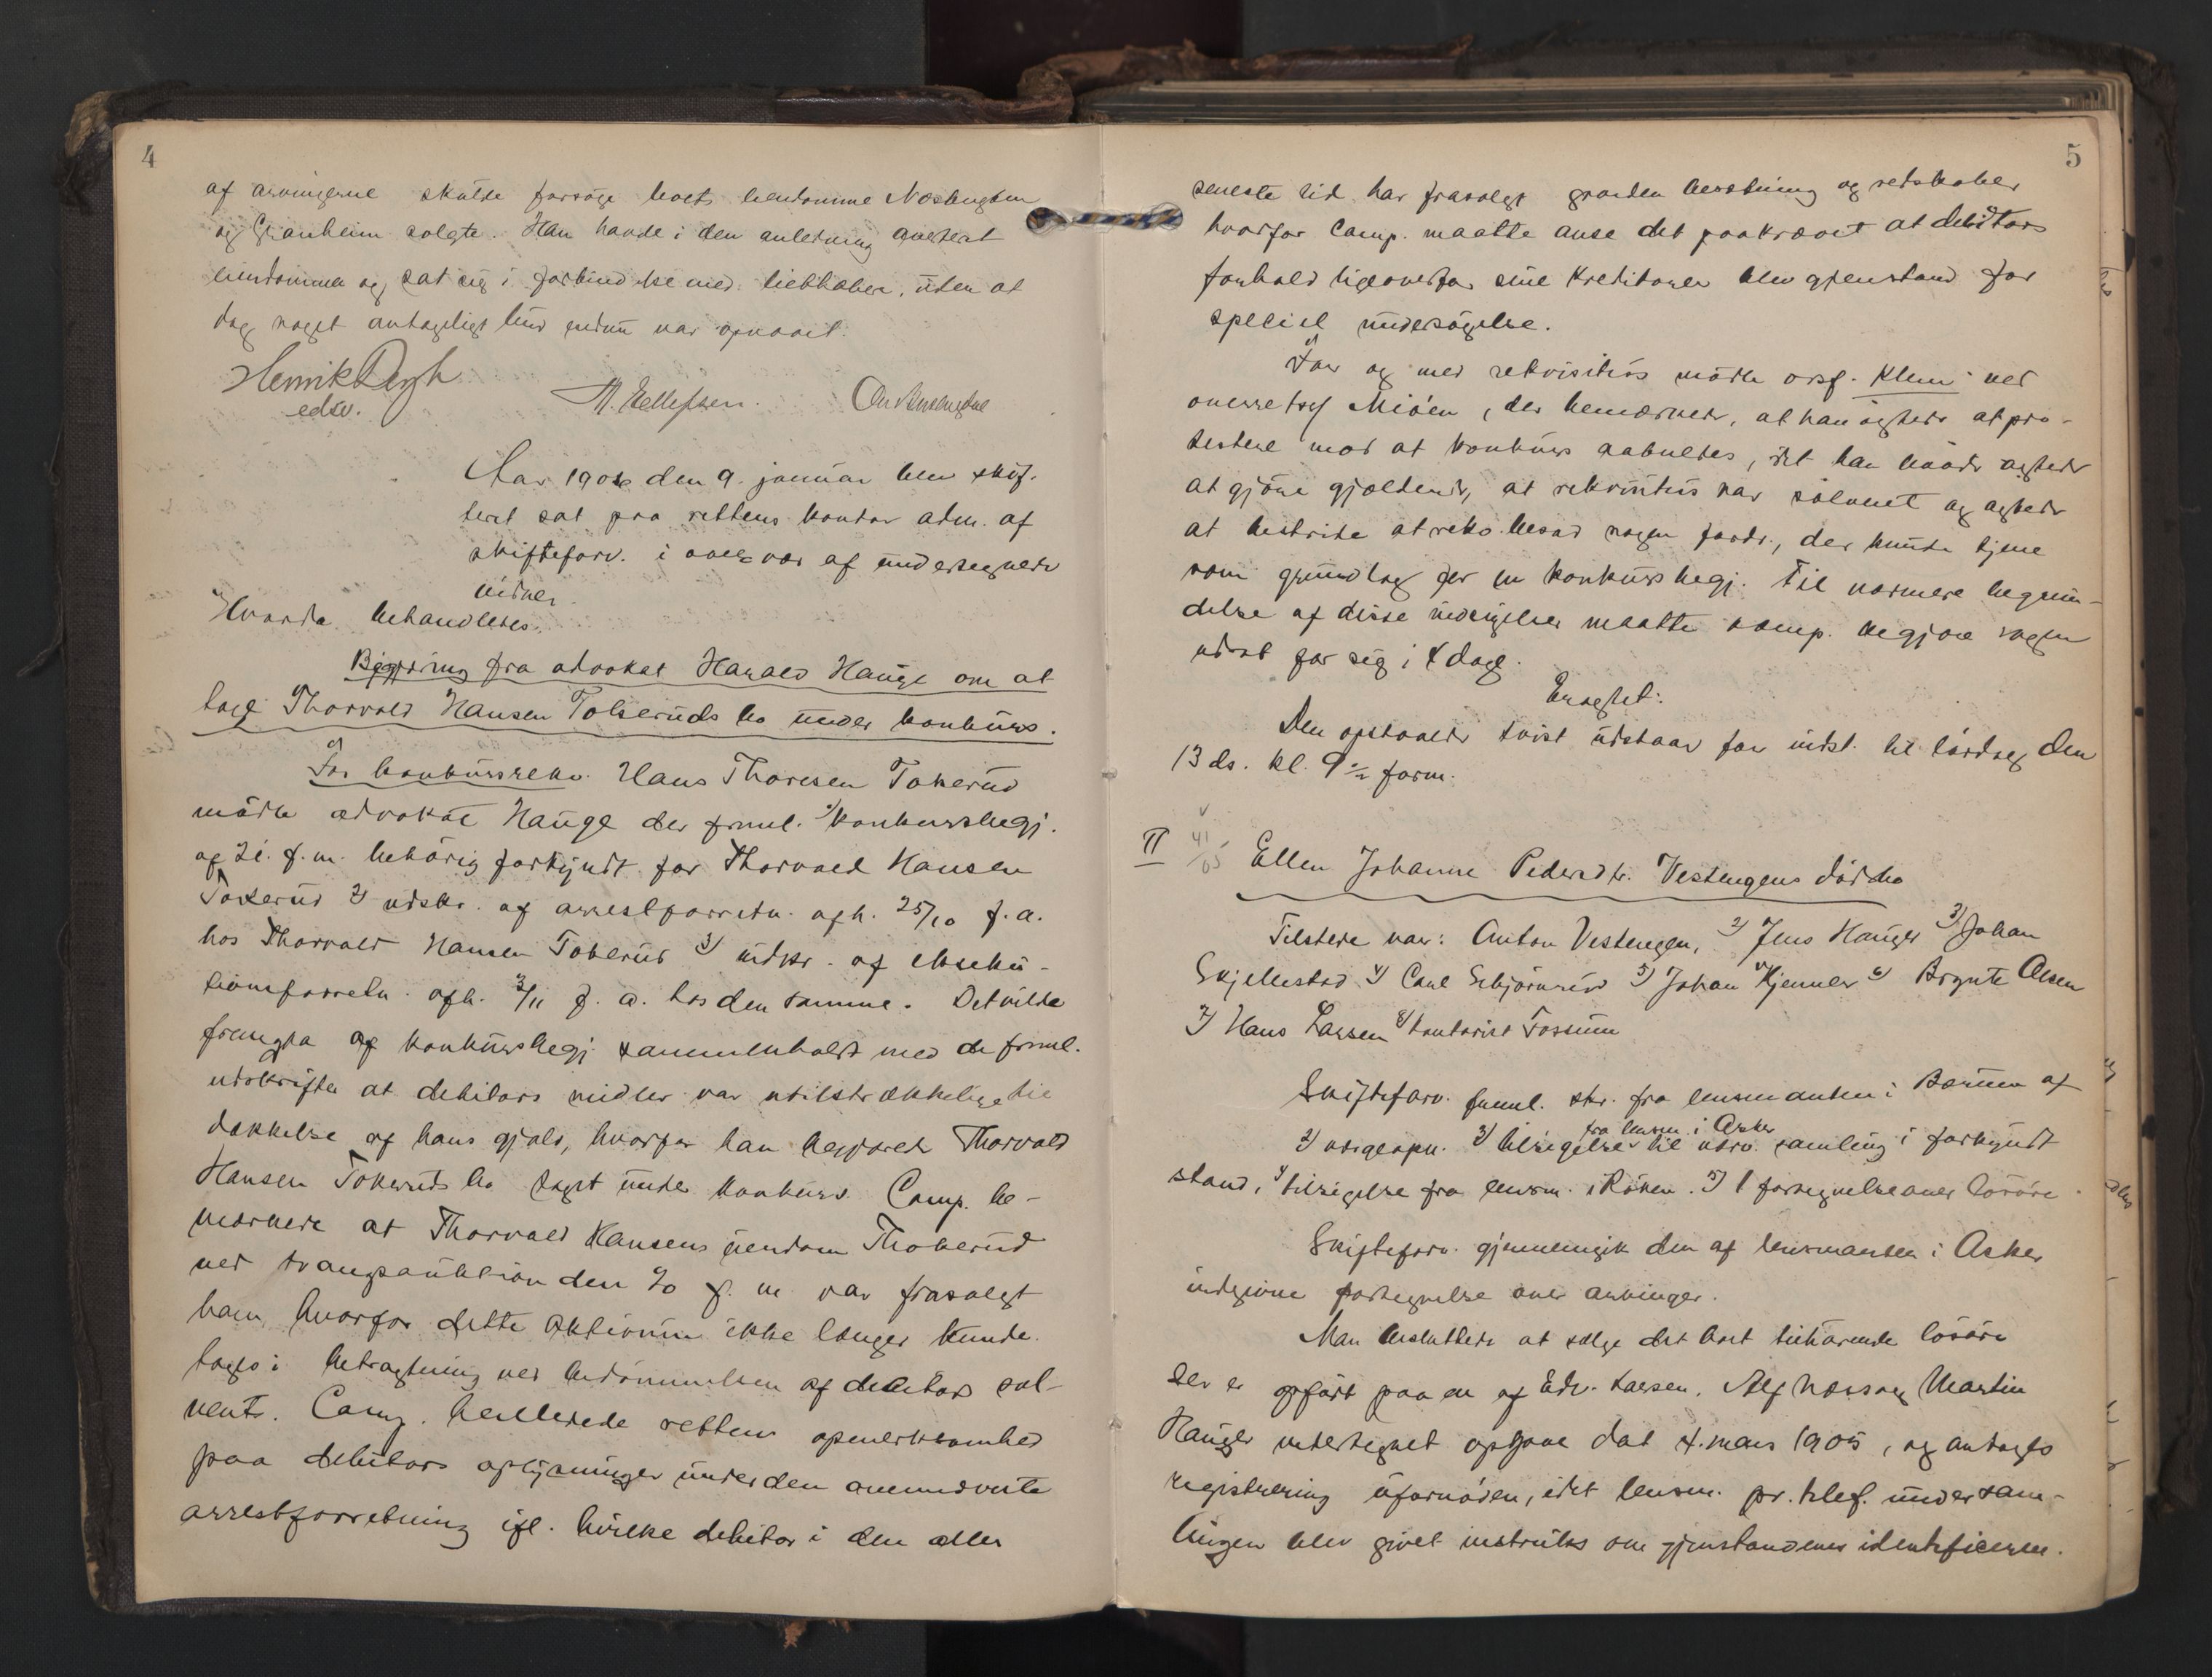 4
af arvingerne skulde forsøge boets eiendomme Næsengten
og Granheim solgte. Han havde i den anledning averteret
eiendommen og sat sig i forbindelse med liebhabere, uden at
dog noget antageligt bud endnu var opnaaet.
Henrik Bergh
edsv.
M. Ellefsen.
Aar 1906 den 9. januar blev skif-
teret sat paa rettens kontor adm. af
skifteforv. i overvær af undertegnede
vidner.
Hvorda behandledes:
Begjæring fra advokat Harald Hauge om at
tage Thorvald Hansen Tokeruds bo under konkurs.
For konkursrekv. Hans Thoresen Tokerud
mødte advokat Hauge der freml. 1) konkursbegj.
af 21. f. m. behørig forkyndt for Thorvald Hansen
Tokerud 2) udskr. af arrestforretn. afh. 25/10 f. a.
hos Thorvald Hansen Tokerud 3) udskr. af eksekú-
tionsforretn. afh. 3/11 f. a. hos den samme. Det vilde
fremgaa af konkursbegj. sammenholdt med de freml.
udskrifter at debitors midler var utilstrækkelige til
dækkelse af hans gjæld, hvorfor han begjærede Thorvald
Hansen Tokeruds bo taget under konkurs. Comp. be-
mærkede at Thorvald Hansens eiendom Thokerud
ved tvangsauktion den f. m. var frasolgt
ham, hvorfor dette aktivum ikke længer kunde
tages i betragtning ved bedømmelsen af debitors sol-
vents. Comp. henledede rettens opmerksomhed
paa debitors oplysninger under den omhandlede
arrestforretning ifl. hvilke debitor i den aller
5
seneste tid har frasolgt gaarden besætning og redskaber
hvorfor comp. maatte anse det paakrævet at debitors
forhold ligeoverfor sine kreditorer blev gjenstand for
speciel undersøgelse.
For og med rekvisitus mødte orsf. Klem ved
overretssf Miøen, der bemærkede, at han agtede at pro-
testere mod at konkurs aabnedes, idet han baade agtede
at gjøre gjældende, at rekvisitus var solvent og agtede
at bestride at rekv. besad nogen fordr., der kunde tjene
som grundlag for en konkursbegj. Til nærmere begrun-
delse af disse indsigelser maatte comp. begjære sagen
udsat for sig i 4 dage.
Eragtet:
Den opstaaede tvist udstaar for indst. til lørdag den
13 ds. kl. 9 1/2 form.
II
41/05
Ellen Johanne Pedersdtr. Vestengens dødsbo
Tilstede var: Anton Vestengen, 2) Jens Hauger 3) Johan
Skjellestad 4) Carl Esbjørnrud 5) Johan Hjemmer 6) Bernte Olsen
7) Hans Larsen 8) kontorist Fossum
Skifteforv. freml. skr. fra lensmanden i Bærum af
fra lensm. i Asker
2) vergeopn. 3) tilsigelse til udv. samling i forkyndt
stand, 4) tilsigelse fra lensm. i Røken. 5) 1 fortegnelse over løsøre.
Skifteforv. gjennemgik den af lensmanden i Asker
indgivne fortegnelse over arvinger.
Man besluttede at sælge det boet tilhørende løsøre
der er opført paa en af Edv. Larsen, Alf Næss og Martin
Hauger undertegnet opgave dat 4. mars 1905, og antoges
registrering ufornøden, idet lensm. pr. telef. under sam-
lingen blev givet instruks om gjenstandenes identificeren.